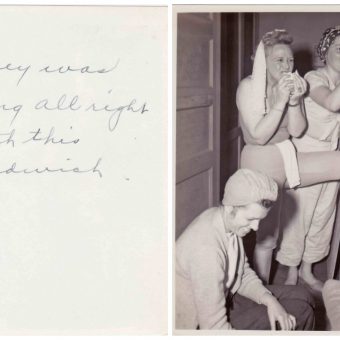 ey was
ng all right
th this
ndwich.